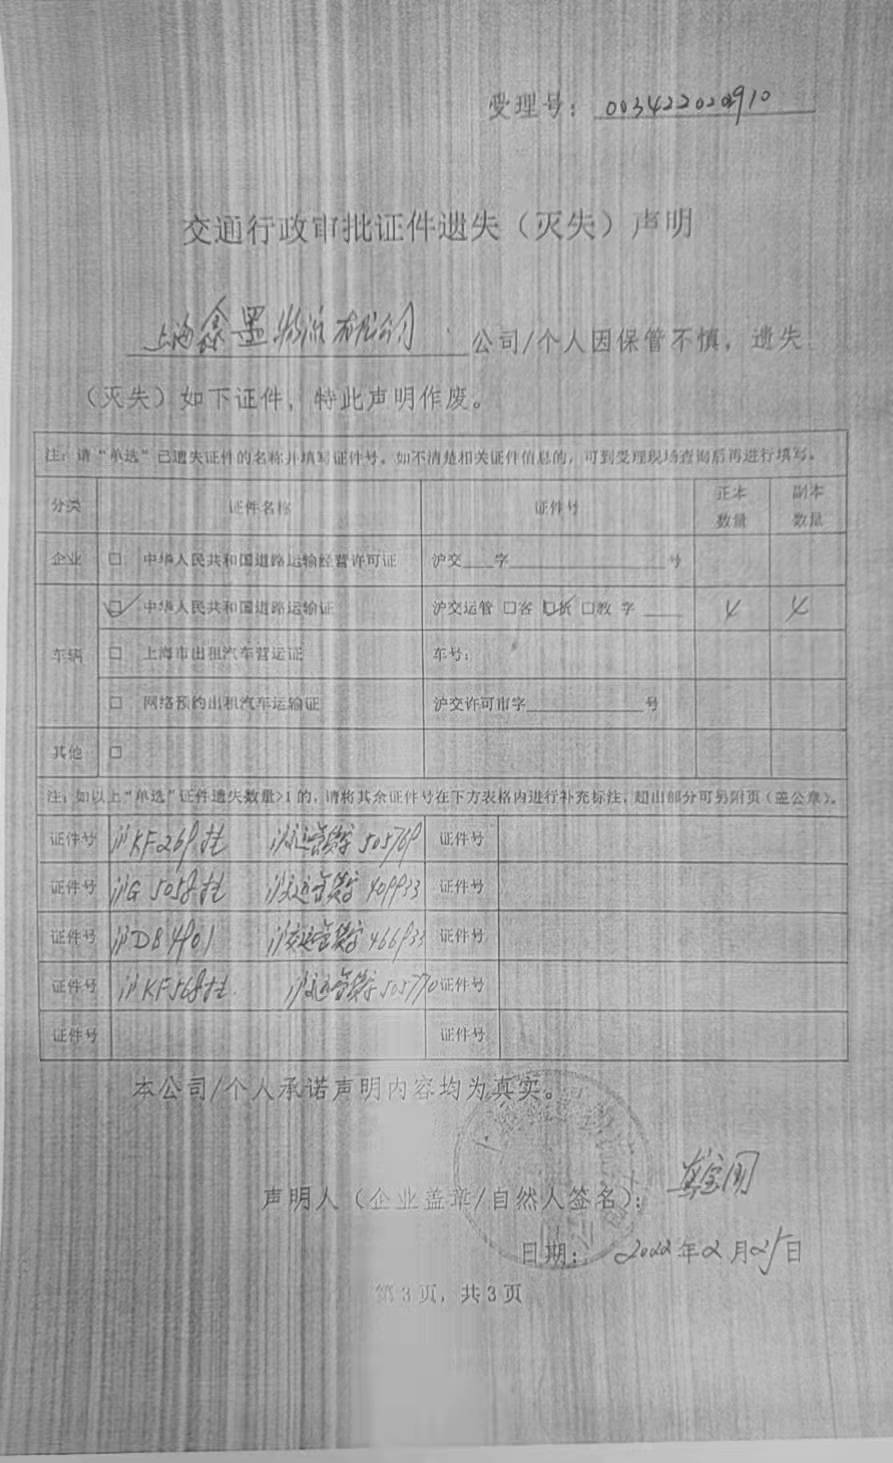 受理号：003422020910
交通行政审批证件遗失（灭失）声明
上海鑫墨物流有限公司 公司/个人因保管不慎，遗失
（灭失）如下证件，特此声明作废。
注：请“单选”已遗失证件的名称并填写证件号。如不清楚相关证件信息的，可到受理现场查询后再进行填写。
分类 证件名称 证件号 正本数量 副本数量
企业 □ 中华人民共和国道路运输经营许可证 沪交____字________________号
车辆 ☑ 中华人民共和国道路运输证 沪交运管 □客 ☑货 □教 字 ____ 4 4
□ 上海市出租汽车营运证 车号：
□ 网络预约出租汽车运输证 沪交许可市字____________号
其他 □
注：如以上“单选”证件遗失数量>1的，请将其余证件号在下方表格内进行补充标注，超出部分可另附页（盖公章）。
证件号 沪KF269挂 沪交运管货字505769 证件号
证件号 沪G5058挂 沪交运管货字409933 证件号
证件号 沪D84901 沪交运管货字466933 证件号
证件号 沪KF568挂 沪交运管货字505770 证件号
证件号 证件号
本公司/个人承诺声明内容均为真实。
声明人（企业盖章/自然人签名）：
日期：2022年2月25日
第3页，共3页